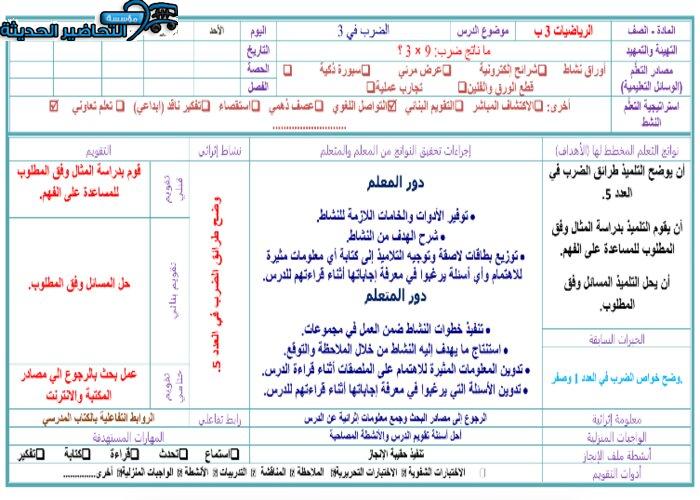 مؤسسة
التحاضير الحديثة
المادة - الصف
الرياضيات 3 ب
موضوع الدرس
الضرب في 3
اليوم
الأحد
التهيئة والتمهيد
ما ناتج ضرب: 9 × 3 ؟
التاريخ
مصادر التعلم
(الوسائل التعليمية)
أوراق نشاط
شرائح إلكترونية
عرض مرئي
سبورة ذكية
قطع الورق والفلين
تجارب عملية
الحصة
الفصل
استراتيجية التعلم
النشط
تعلم تعاوني
تفكير ناقد (إبداعي)
استقصاء
عصف ذهني
التواصل اللغوي
التقويم البنائي
الاكتشاف المباشر
أخرى:
نواتج التعلم المخطط لها (الأهداف)
إجراءات تحقيق النواتج من المعلم والمتعلم
نشاط إثرائي
التقويم
أن يوضح التلميذ طرائق الضرب في
العدد 5.
أن يقوم التلميذ بدراسة المثال وفق
المطلوب للمساعدة على الفهم.
أن يحل التلميذ المسائل وفق
المطلوب.
الخبرات السابقة
.وضح خواص الضرب في العدد 1 وصفر
دور المعلم
• توفير الأدوات والخامات اللازمة للنشاط.
• شرح الهدف من النشاط.
• توزيع بطاقات لاصقة وتوجيه التلاميذ إلى كتابة أي معلومات مثيرة
للاهتمام وأي أسئلة يرغبوا في معرفة إجاباتها أثناء قراءتهم للدرس.
دور المتعلم
• تنفيذ خطوات النشاط ضمن العمل في مجموعات.
• استنتاج ما يهدف إليه النشاط من خلال الملاحظة والتوقع.
• تدوين المعلومات المثيرة للاهتمام على الملصقات أثناء قراءة الدرس.
• تدوين الأسئلة التي يرغبوا في معرفة إجاباتها أثناء قراءتهم للدرس.
وضح طرائق الضرب في العدد 5.
تقويم قبلي
قوم بدراسة المثال وفق المطلوب
للمساعدة على الفهم.
تقويم بنائي
حل المسائل وفق المطلوب.
تقويم ختامي
عمل بحث بالرجوع الي مصادر
المكتبة والانترنت
معلومة إثرائية
الرجوع إلى مصادر البحث وجمع معلومات إثرائية عن الدرس
رابط تفاعلي
الروابط التفاعلية بالكتاب المدرسي
الواجبات المنزلية
احل أسئلة تقويم الدرس والأنشطة المصاحبة
المهارات المستهدفة
أنشطة ملف الإنجاز
تنفيذ حقيبة الإنجاز
استماع
تحدث
قراءة
كتابة
تفكير
أدوات التقويم
الاختبارات الشفوية
الاختبارات التحريرية
الملاحظة
المناقشة
التدريبات
الأنشطة
الواجبات المنزلية
أخرى...............